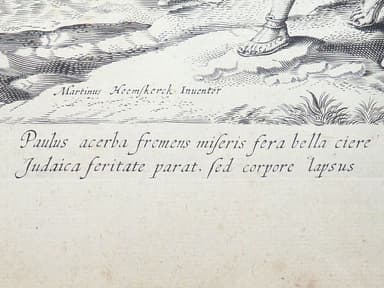 Martinus Heemſkerck Inuentor
Paulus acerba fremens miſeris fera bella ciere
Judaica feritate parat. ſed corpore lapsus